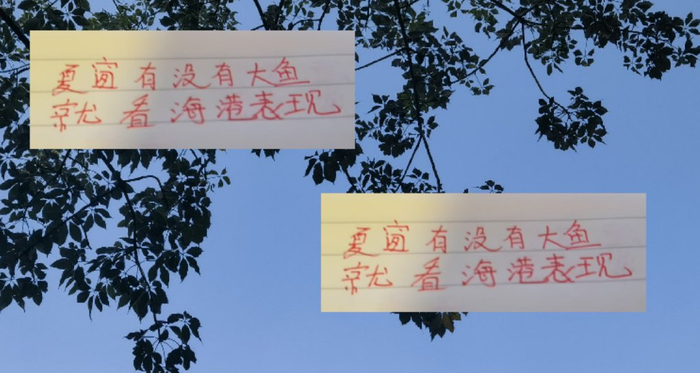 夏窗有没有大鱼
就看海港表现
夏窗有没有大鱼
就看海港表现